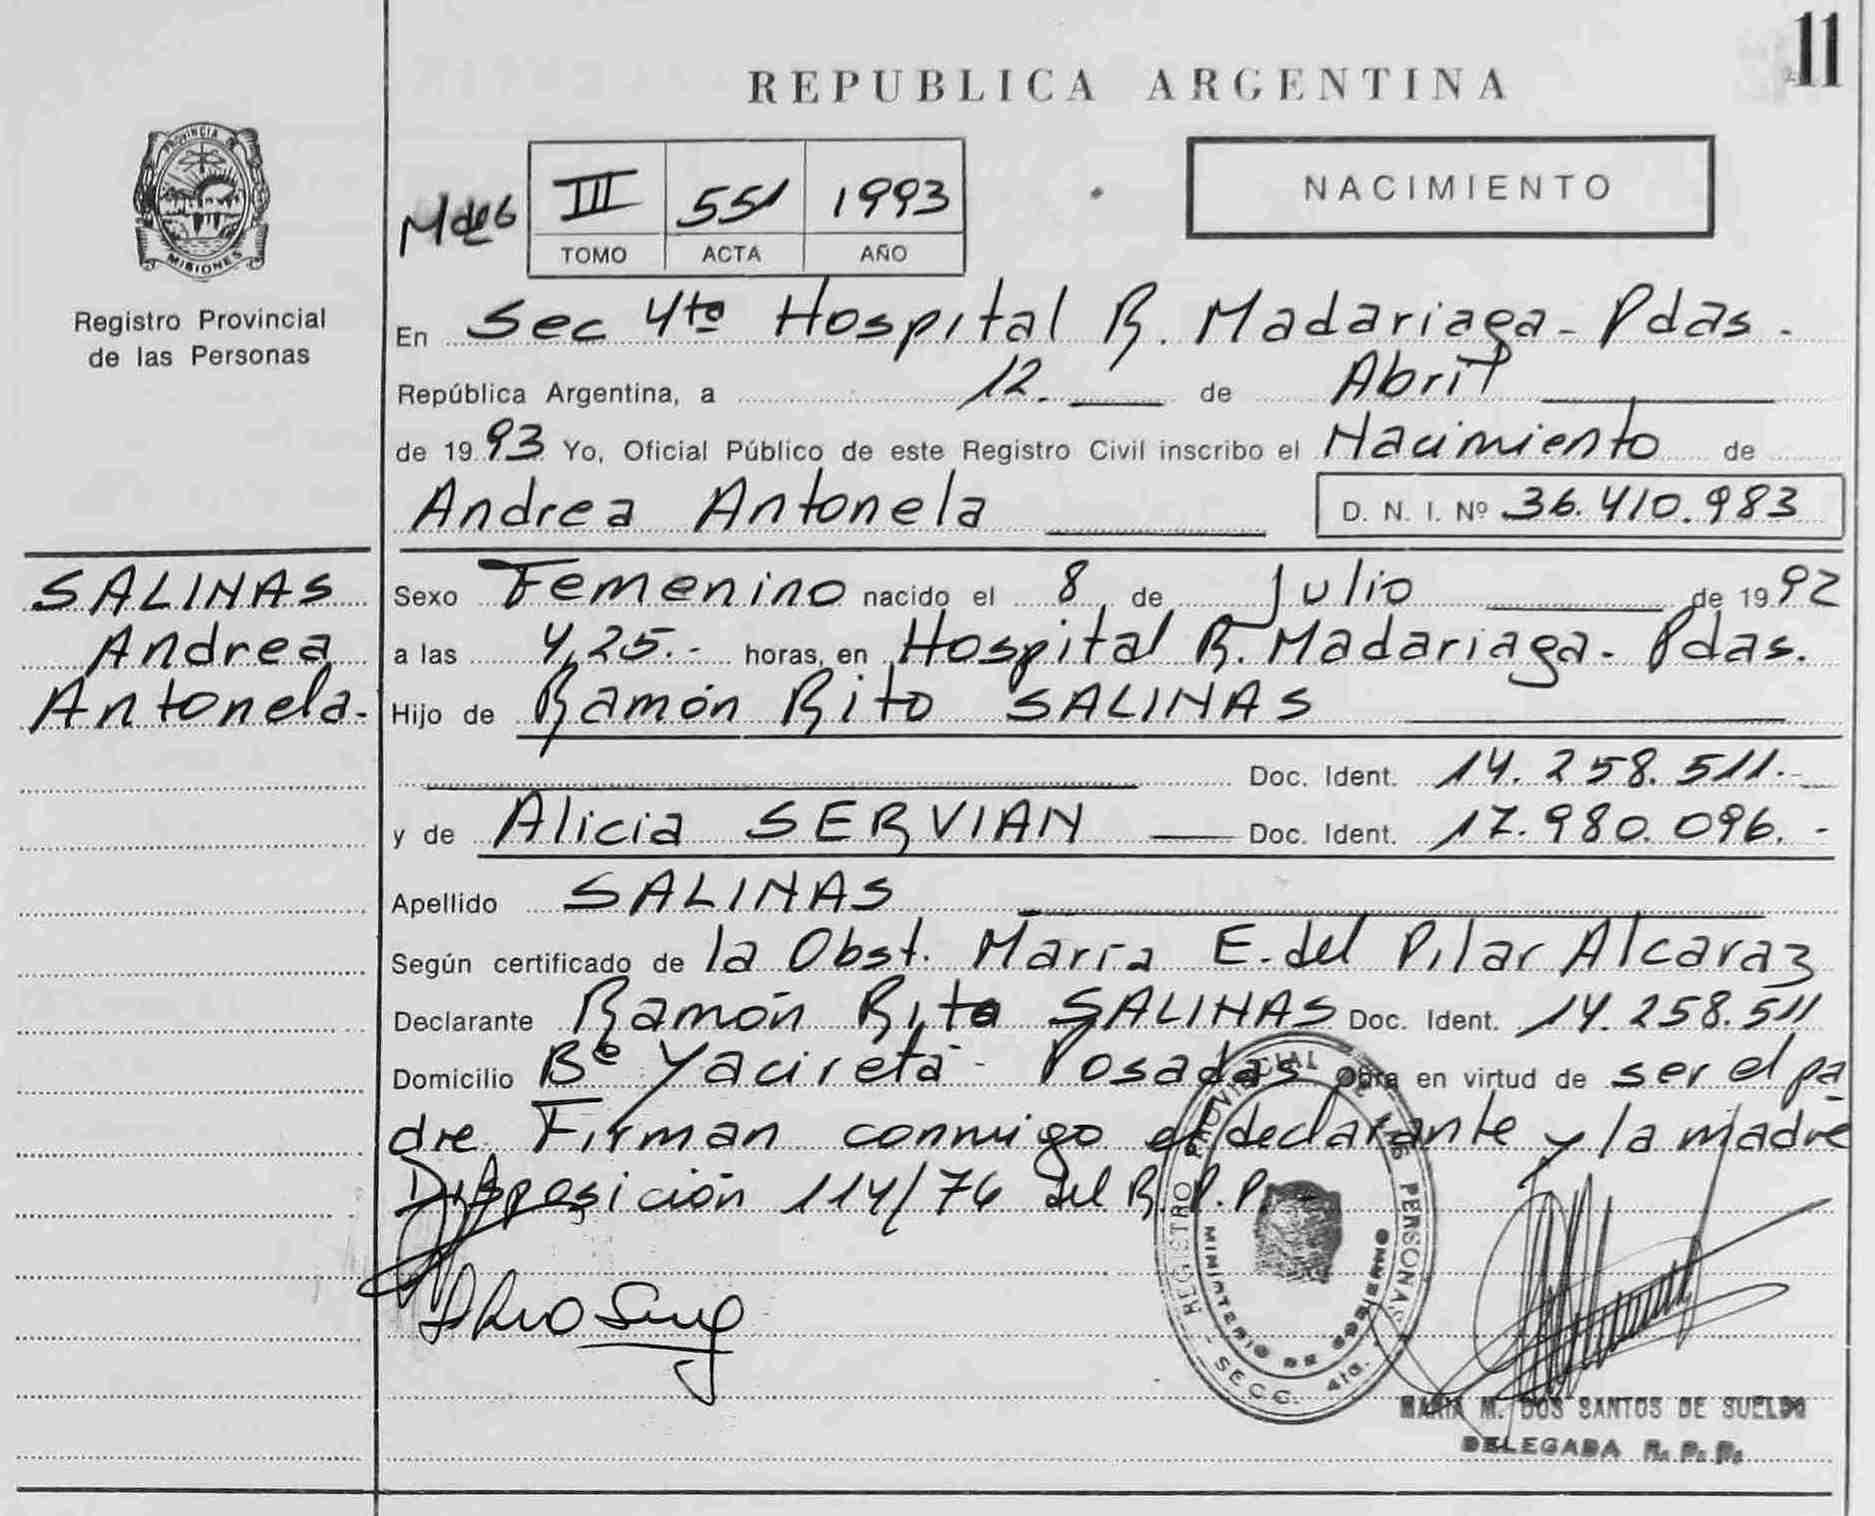 11
REPUBLICA ARGENTINA
PROVINCIA DE
MISIONES
Registro Provincial
de las Personas
III 551 1993
TOMO ACTA AÑO
NACIMIENTO
En Sec 4ta Hospital R. Madariaga - Pdas.
República Argentina, a 12. de Abril
de 1993 Yo, Oficial Público de este Registro Civil inscribo el Nacimiento de
Andrea Antonela D. N. I. Nº 36.410.983
SALINAS
Andrea
Antonela.-
Sexo Femenino nacido el 8 de Julio de 1992
a las 4,25.- horas, en Hospital R. Madariaga - Pdas.
Hijo de Ramón Rito SALINAS
Doc. Ident. 14.258.511.-
y de Alicia SERVIAN Doc. Ident. 17.980.096.-
Apellido SALINAS
Según certificado de la Obst. María E. del Pilar Alcaraz
Declarante Ramón Rito SALINAS Doc. Ident. 14.258.511
Domicilio Bº Yacireta - Posadas Obra en virtud de ser el pa
dre. Firman conmigo el declarante y la madre
Disposición 114/76 del R.P.P.-
REGISTRO PROVINCIAL DE LAS PERSONAS
MINISTERIO DE GOBIERNO
SECC. 4ta.
MARIA M. DOS SANTOS DE SUELDO
DELEGADA R. P. P.